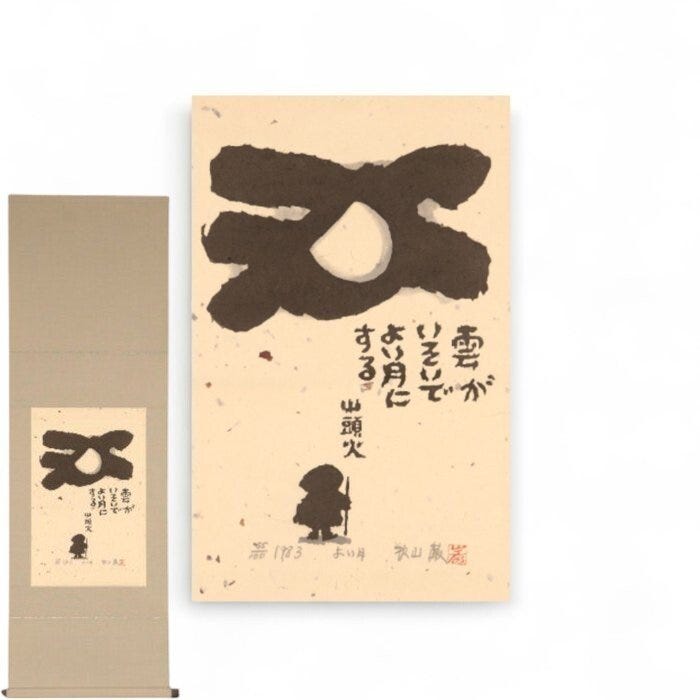 雲が
いそいで
よい月に
する
山頭火
1983 よい月 秋山巌